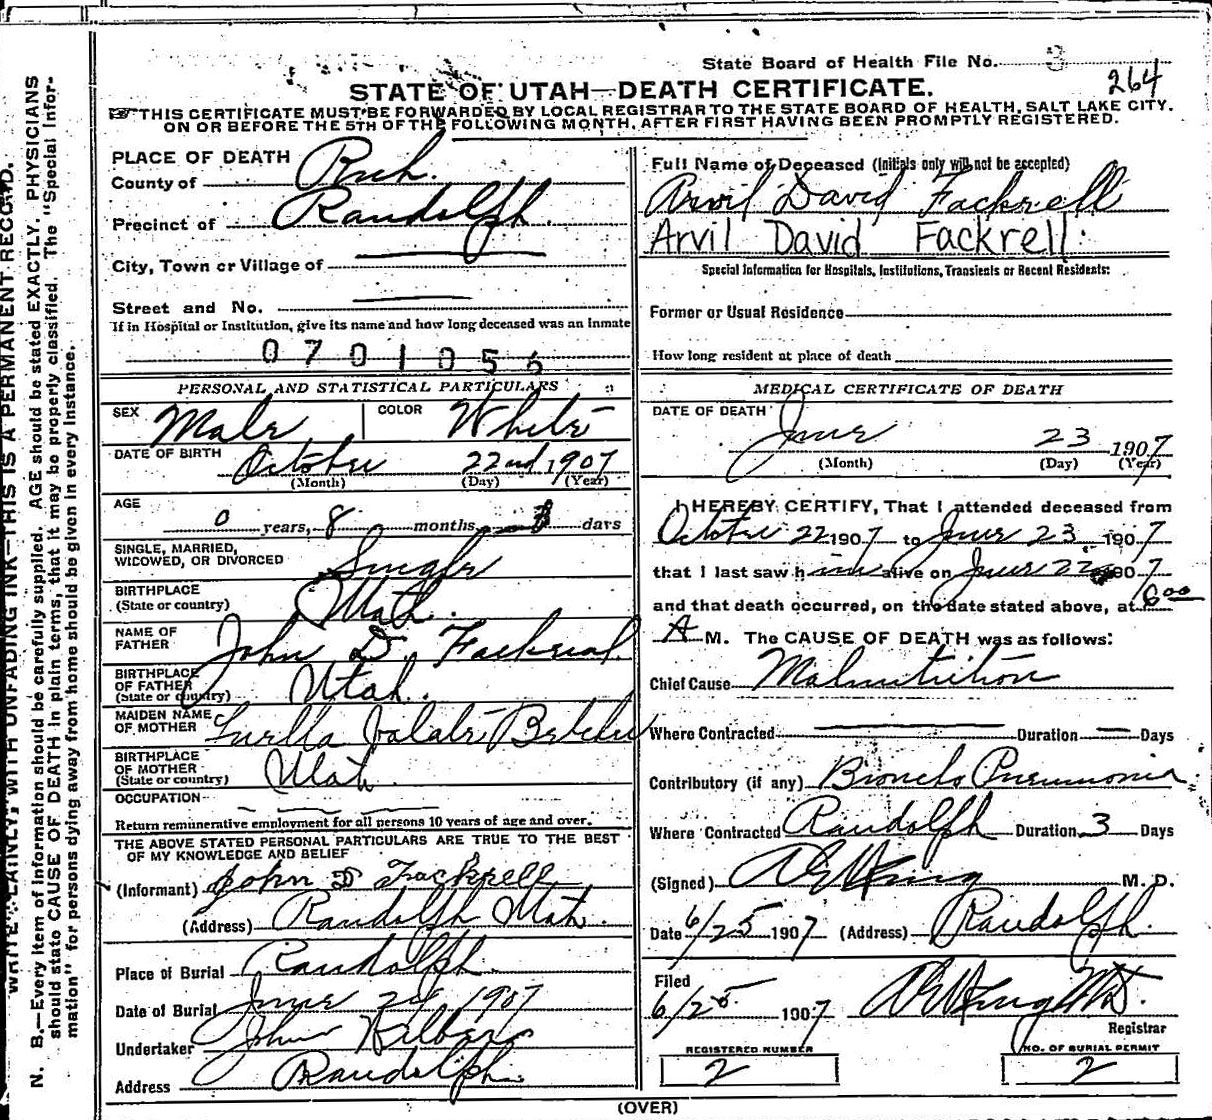 State Board of Health File No. 3
264
STATE OF UTAH—DEATH CERTIFICATE.
THIS CERTIFICATE MUST BE FORWARDED BY LOCAL REGISTRAR TO THE STATE BOARD OF HEALTH, SALT LAKE CITY.
ON OR BEFORE THE 5TH OF THE FOLLOWING MONTH, AFTER FIRST HAVING BEEN PROMPTLY REGISTERED.
WRITE PLAINLY, WITH UNFADING INK—THIS IS A PERMANENT RECORD.
N. B.—Every item of information should be carefully supplied. AGE should be stated EXACTLY. PHYSICIANS
should state CAUSE OF DEATH in plain terms, that it may be properly classified. The "Special Infor-
mation" for persons dying away from home should be given in every instance.
PLACE OF DEATH
County of Rich.
Precinct of Randolph.
City, Town or Village of
Street and No.
If in Hospital or Institution, give its name and how long deceased was an inmate
0701056
PERSONAL AND STATISTICAL PARTICULARS
SEX Male COLOR White
DATE OF BIRTH October 22nd, 1907
(Month) (Day) (Year)
AGE
0 years, 8 months, days
SINGLE, MARRIED,
WICOWED, OR DIVORCED Single
BIRTHPLACE
(State or country) Utah.
NAME OF
FATHER John D. Fackrell
BIRTHPLACE
OF FATHER
(State or country) Utah.
MAIDEN NAME
OF MOTHER Luella
BIRTHPLACE
OF MOTHER
(State or country) Utah
OCCUPATION
Return remunerative employment for all persons 10 years of age and over.
THE ABOVE STATED PERSONAL PARTICULARS ARE TRUE TO THE BEST
OF MY KNOWLEDGE AND BELIEF
(Informant) John D Fackrell
(Address) Randolph Utah.
Place of Burial Randolph.
Date of Burial June 24 1907
Undertaker John
Address Randolph.
Full Name of Deceased (Initials only will not be accepted)
Arvil David Fackrell
Arvil David Fackrell.
Special Information for Hospitals, Institutions, Transients or Recent Residents:
Former or Usual Residence
How long resident at place of death
MEDICAL CERTIFICATE OF DEATH
DATE OF DEATH June 23 1907
(Month) (Day) (Year)
I HEREBY CERTIFY, That I attended deceased from
October 22 1907 to June 23 1907
that I last saw him alive on June 22 1907
and that death occurred, on the date stated above, at 6 00
A M. The CAUSE OF DEATH was as follows:
Chief Cause Malnutrition
Where Contracted Duration Days
Contributory (if any) Broncho Pneumonia.
Where Contracted Randolph Duration 3 Days
(Signed) M. D.
Date 6/25 1907 (Address) Randolph.
Filed
6/25 1907
Registrar
REGISTERED NUMBER
2
NO. OF BURIAL PERMIT
2
(OVER)